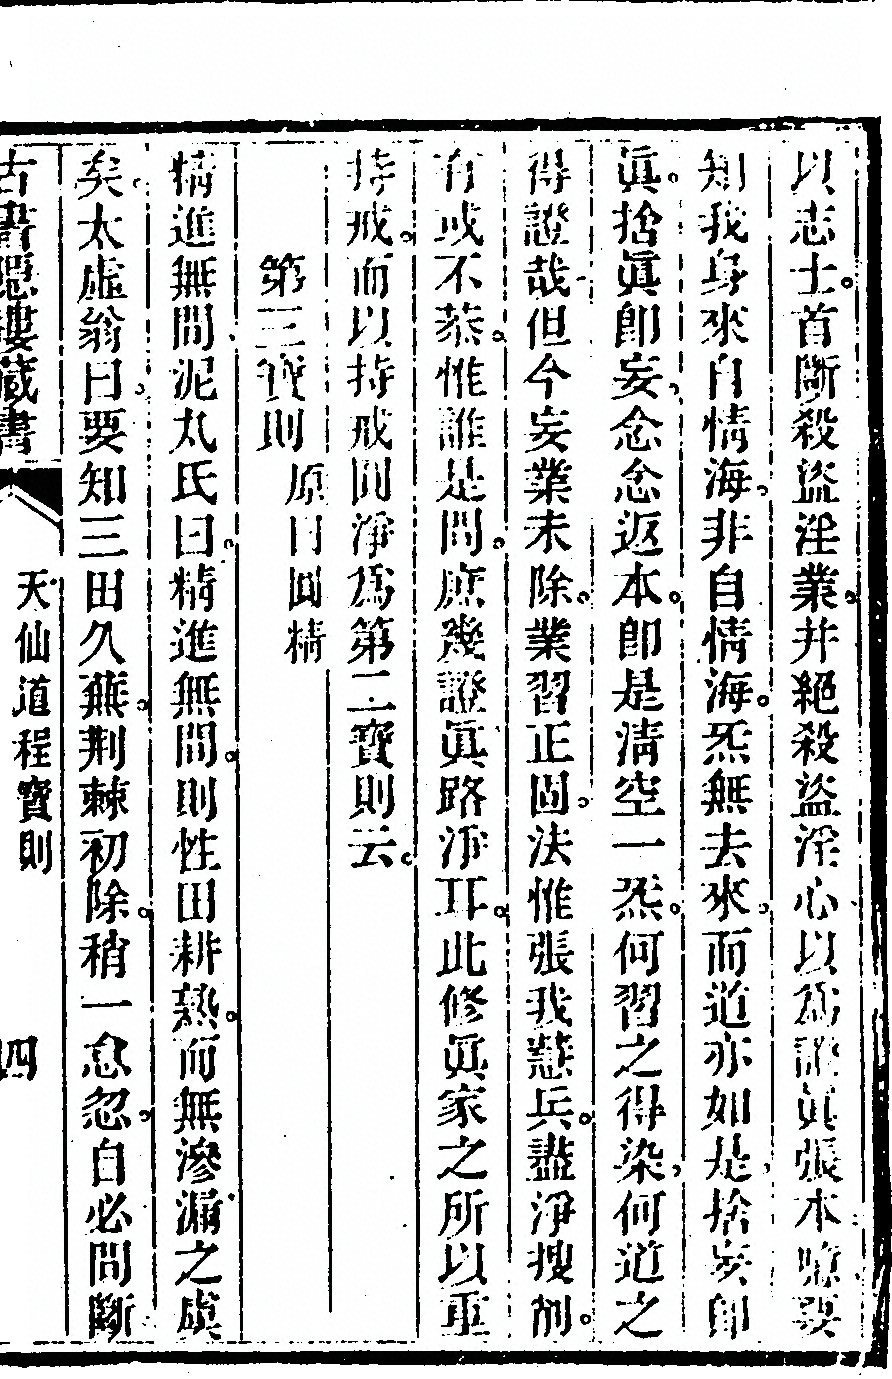 以志士。首斷殺盜淫業。并絕殺盜淫心以爲證眞張本噫要
知我身來自情海。非自情海。炁無去來。而道亦如是。捨妄卽
眞。捨眞卽妄。念念返本。卽是淸空一炁。何習之得染。何道之
得證哉但今妄業未除。業習正固。法惟張我慧兵。盡淨搜削。
有或不恭。惟誰是問。庶幾證眞路淨耳。此修眞家之所以重
持戒。而以持戒圓淨爲第二寶則云。
第三寶則 原曰圓精
精進無間泥丸氏曰。精進無間。則性田耕熟。而無滲漏之虞
矣。太虛翁曰。要知三田久蕪。荆棘初除。稍一怠忽。自必間斷
古書隱樓藏書 天仙道程寶則 四